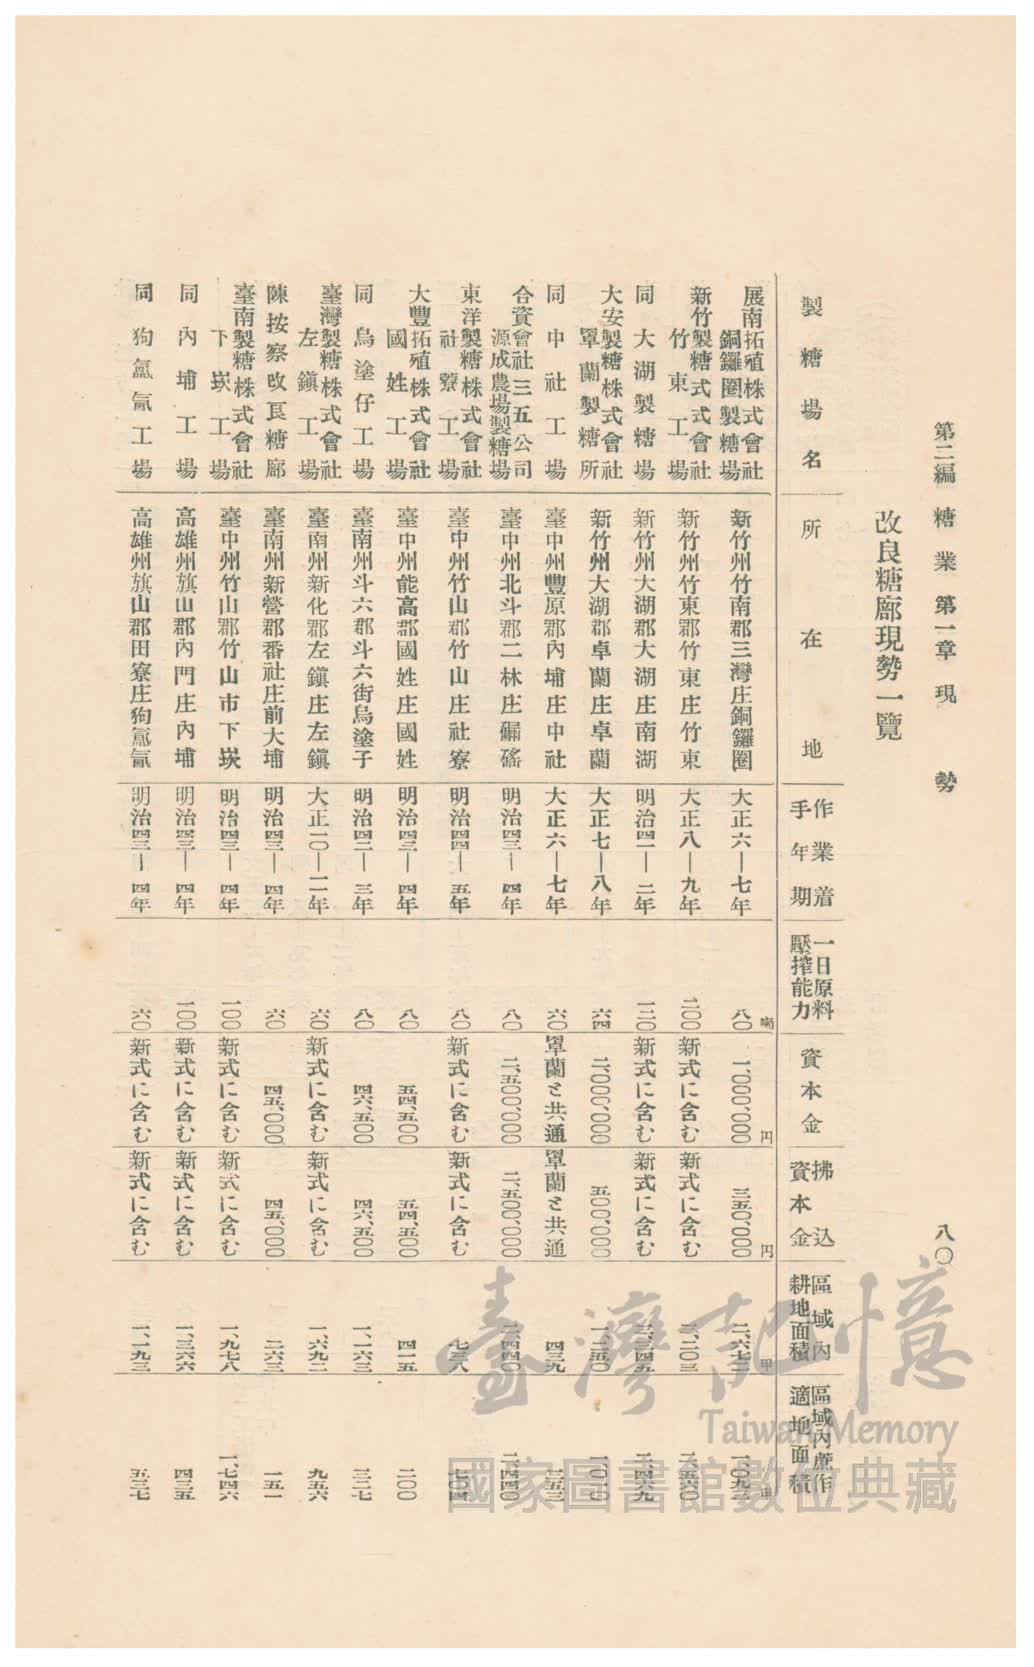 第三編 糖業 第一章 現勢
八〇
改良糖廍現勢一覽
製糖場名 所在地 作業着手年期 一日原料壓搾能力 資本金 拂込資本金 區域內耕地面積 區域內蔗作適地面積
展南拓殖株式會社銅鑼圈製糖場 新竹州竹南郡三灣庄銅鑼圈 大正六—七年 八〇噸 一、〇〇〇、〇〇〇円 三五〇、〇〇〇円
新竹製糖式式會社竹東工場 新竹州竹東郡竹東庄竹東 大正八—九年 二〇〇 新式に含む 新式に含む
同大湖製糖場 新竹州大湖郡大湖庄南湖 明治四一—二年 一二〇 新式に含む 新式に含む
大安製糖株式會社罩蘭製糖所 新竹州大湖郡卓蘭庄卓蘭 大正七—八年 六四 二、〇〇〇、〇〇〇 五〇〇、〇〇〇 一、二五〇 一、〇一〇
同中社工場 臺中州豐原郡內埔庄中社 大正六—七年 六〇 罩蘭と共通 罩蘭と共通 四三九
合資會社三五公司源成農場製糖場 臺中州北斗郡二林庄 明治四三—四年 八〇 二、五〇〇、〇〇〇 二、五〇〇、〇〇〇
東洋製糖株式會社社寮工場 臺中州竹山郡竹山庄社寮 明治四四—五年 八〇 新式に含む 新式に含む 七三八 七〇四
大豐拓殖株式會社國姓工場 臺中州能高郡國姓庄國姓 明治四三—四年 八〇 五四、五〇〇 五四、五〇〇 四一五 二〇〇
同烏塗仔工場 臺南州斗六郡斗六街烏塗子 明治四二—三年 八〇 四六、五〇〇 四六、五〇〇 一、一六三 三二七
臺灣製糖株式會社左鎭工場 臺南州新化郡左鎭庄左鎭 大正一〇—一一年 六〇 新式に含む 新式に含む 一、六九二 九五六
陳按察改良糖廍 臺南州新營郡番社庄前大埔 明治四三—四年 六〇 四五、〇〇〇 四五、〇〇〇 二六三 一五一
臺南製糖株式會社下崁工場 臺中州竹山郡竹山市下崁 明治四三—四年 一〇〇 新式に含む 新式に含む 一、九七八 一、七四六
同內埔工場 高雄州旗山郡內門庄內埔 明治四三—四年 一〇〇 新式に含む 新式に含む 一、三六六 四三五
同狗氳氤工場 高雄州旗山郡田寮庄狗氳氤 明治四三—四年 六〇 新式に含む 新式に含む 一、一九三 五三七
臺灣記憶
Taiwan Memory
國家圖書館數位典藏